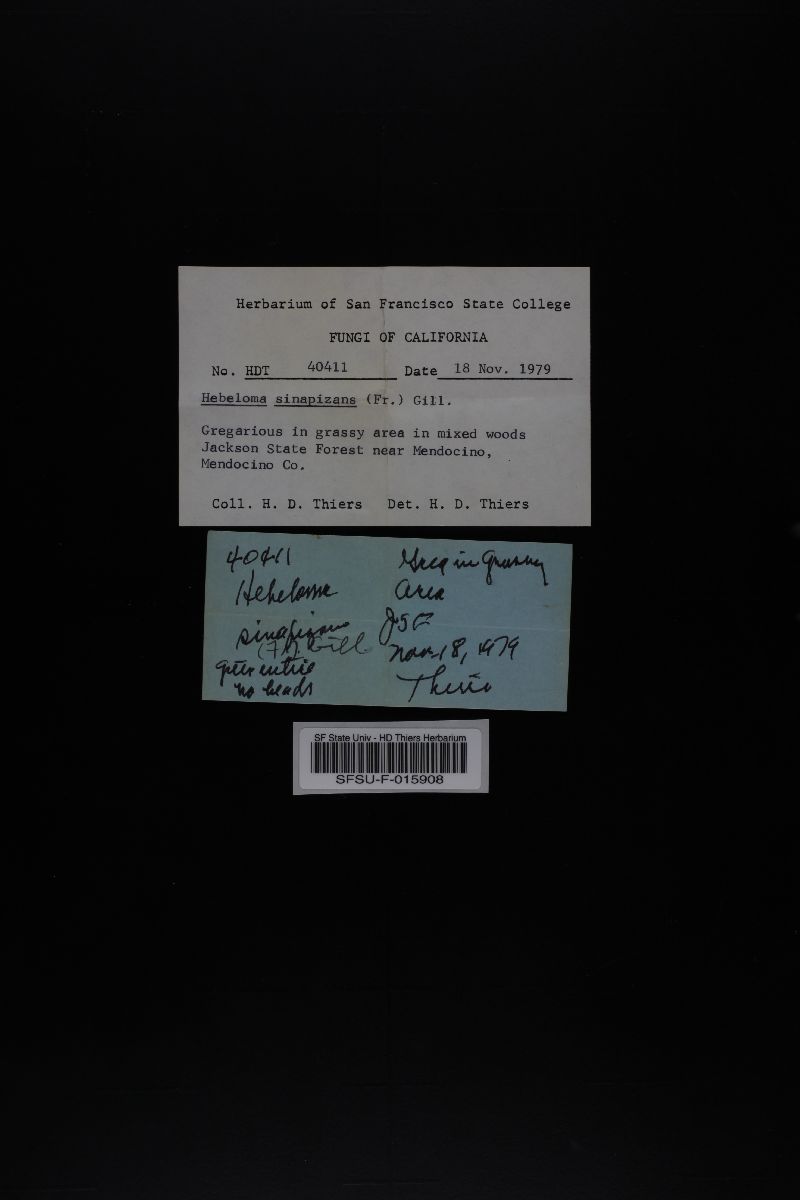 Herbarium of San Francisco State College
FUNGI OF CALIFORNIA
No. HDT 40411 Date 18 Nov. 1979
Hebeloma sinapizans (Fr.) Gill.
Gregarious in grassy area in mixed woods
Jackson State Forest near Mendocino,
Mendocino Co.
Coll. H. D. Thiers Det. H. D. Thiers
40411
Hebeloma
sinapizans
(Fr) Gill
no beads
Greg in Grassy
Area
JSF
Nov. 18, 1979
Thiers
SF State Univ - HD Thiers Herbarium
SFSU-F-015908